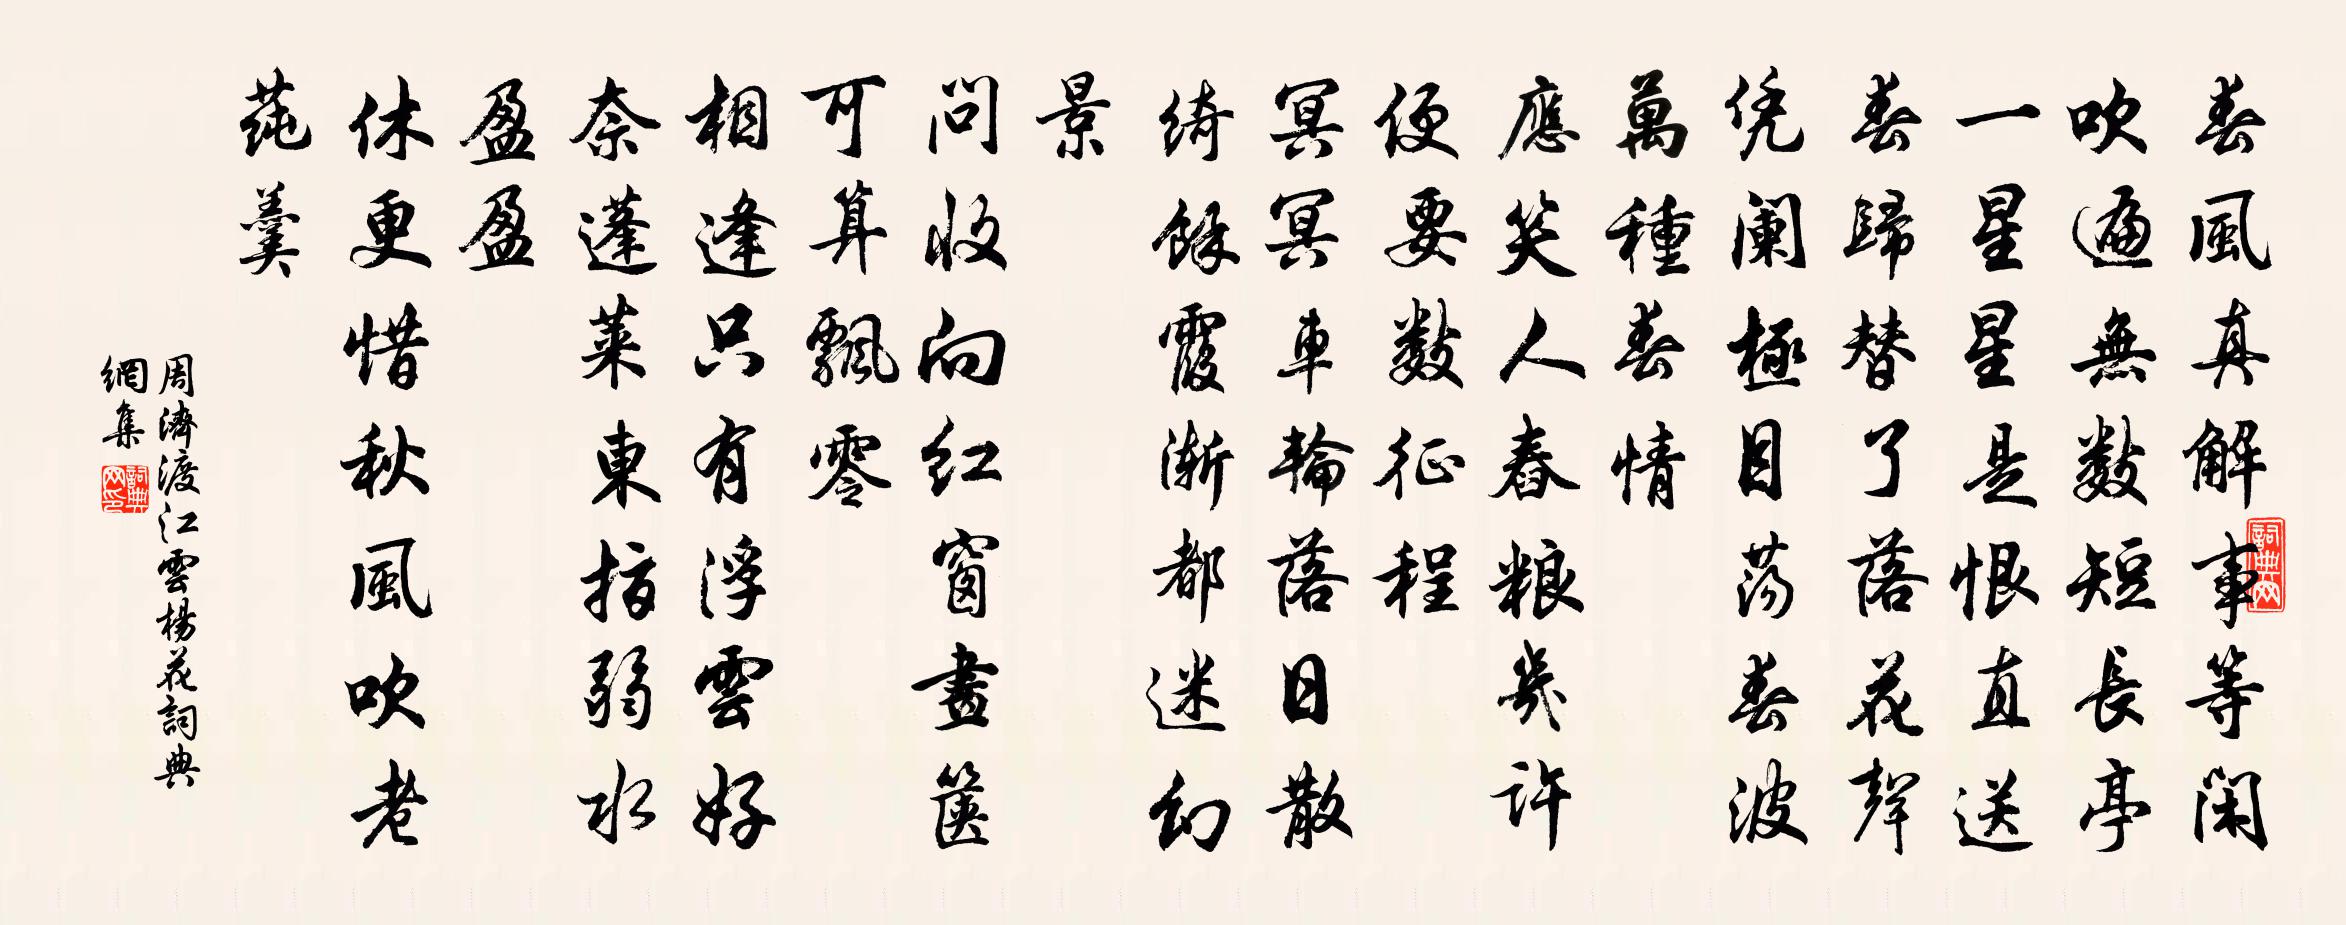 春風真解事等閑
吹遍無數短長亭
一星星是恨直送
春歸替了落花聲
凭闌極目蕩春波
萬種春情
應笑人舂粮幾許
便要數征程
冥冥車輪落日散
綺餘霞漸都迷幻
景
問收向红窗畫篋
可算飄零
相逢只有浮雲好
奈蓬萊東指弱水
盈盈
休更惜秋風吹老
莼羹
周濟渡江雲楊花詞典
網集
詞典网
詞典网印